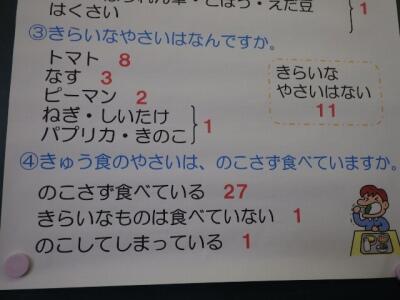 ・ごぼう・えだ豆
はくさい
1
③きらいなやさいはなんですか。
トマト 8
なす 3
ピーマン 2
ねぎ・しいたけ
パプリカ・きのこ
1
きらいな
やさいはない
11
④きゅう食のやさいは、のこさず食べていますか。
のこさず食べている 27
きらいなものは食べていない 1
のこしてしまっている 1